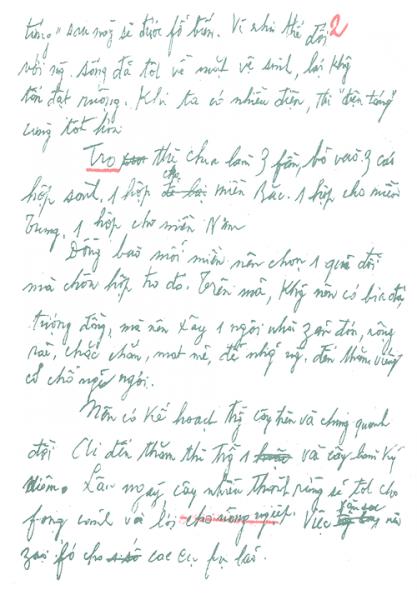 táng" sau này sẽ được fổ biến. Vì như thế đối 2
với ng` sống đã tốt về mặt vệ sinh, lại khg
tốn đất ruộng. Khi ta có nhiều điện, thì "điện táng"
càng tốt hơn.
Tro thì chia làm 3 fần, bỏ vào 3 cái
hộp sành, 1 hộp cho miền Bắc. 1 hộp cho miền
Trung, 1 hộp cho miền Nam
Đồng bào mỗi miền nên chọn 1 quả đồi
mà chôn hộp tro đó. Trên mả, khg nên có bia đá,
tượng đồng, mà nên xây 1 ngôi nhà zản đơn, rộng
rãi, chắc chắn, mát mẻ, để nhg ng` đến thăm viếng
có chỗ nghỉ ngơi.
Nên có kế hoạch trg cây trên và chung quanh
đồi. Ai đến thăm thì trg 1 và cây làm kỷ
niệm. Lâu ngày cây nhiều thành rừng sẽ tốt cho
fong cảnh và lợi cho nông nghiệp. Việc săn sóc nên
zao fó cho các cụ fụ lão.